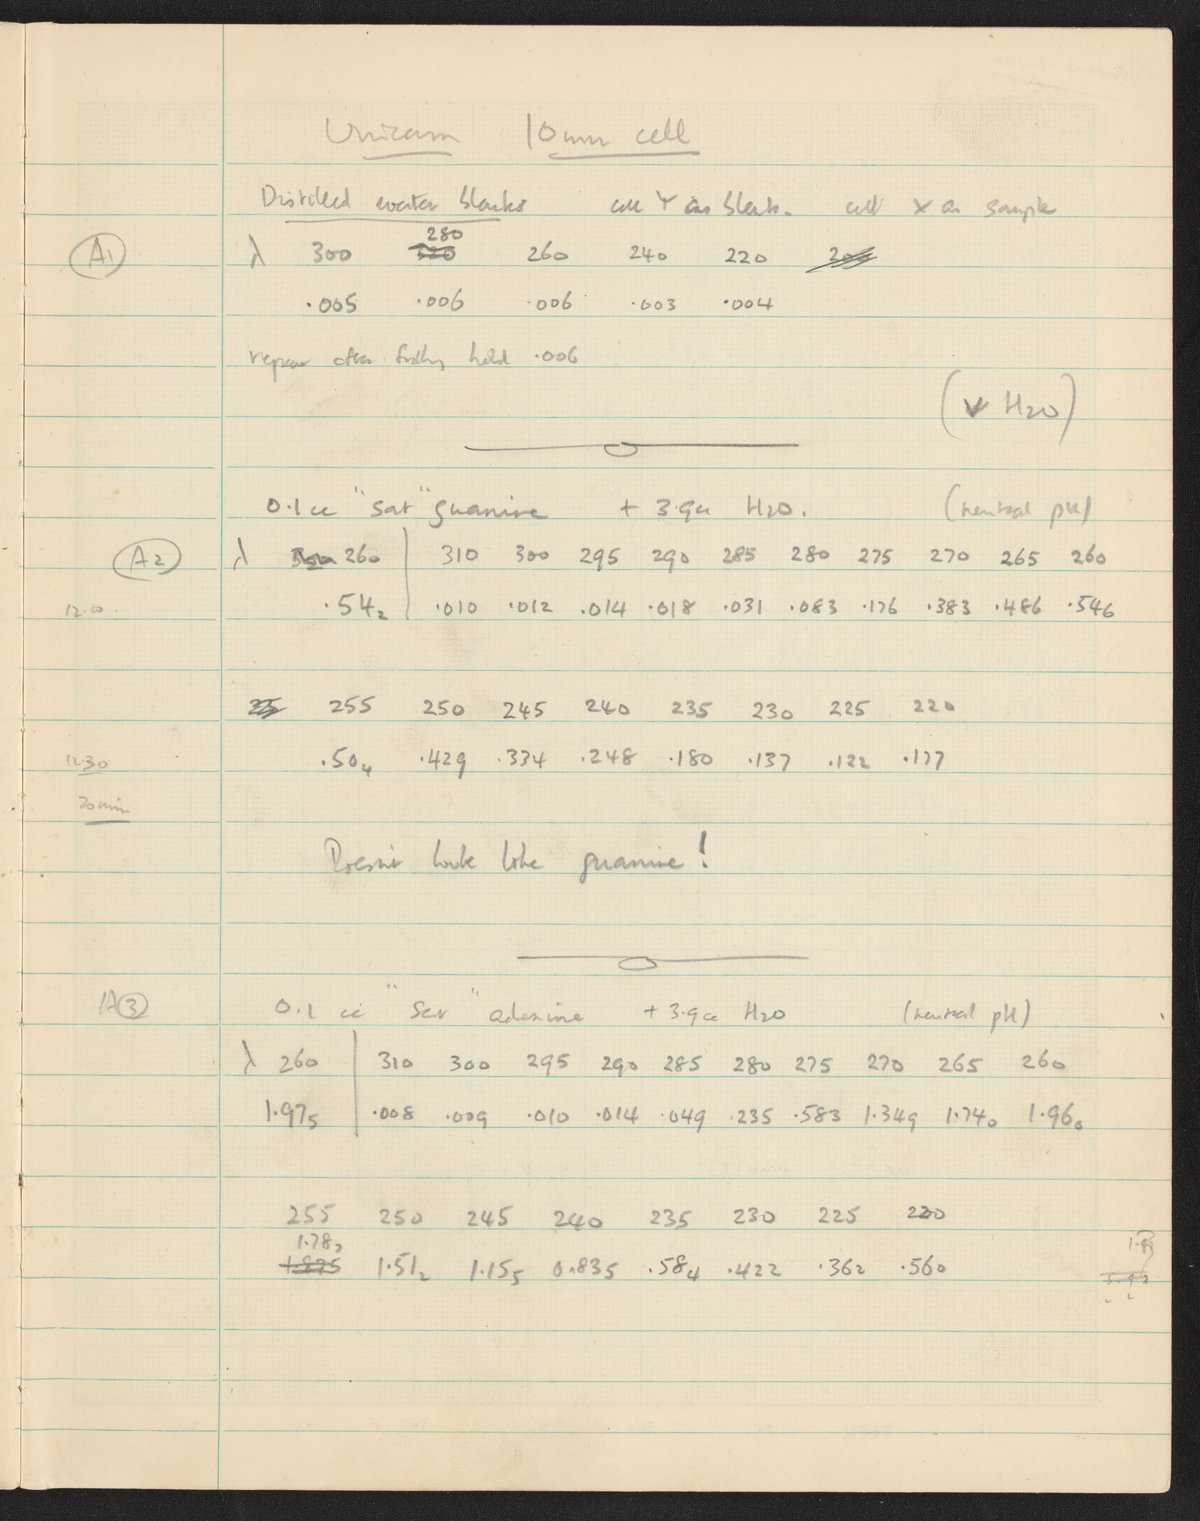 Unicam 10 mm cell
Distilled water blanks cell Y as blank. cell X as sample
280
A1 λ 300 320 260 240 220
.005 .006 .006 .003 .004
repeat after hold .006
(v H2O)
0.1 cc "sat" guanine + 3.9cc H2O. (neutral pH)
A2 λ 260 310 300 295 290 285 280 275 270 265 260
12.0 .542 .010 .012 .014 .018 .031 .083 .176 .383 .486 .546
25 255 250 245 240 235 230 225 220
12.30 .504 .429 .334 .248 .180 .137 .122 .177
30 min
Doesn't look like guanine!
A3 0.1 cc "sat" adenine + 3.9cc H2O (neutral pH)
λ 260 310 300 295 290 285 280 275 270 265 260
1.975 .008 .009 .010 .014 .049 .235 .583 1.349 1.740 1.960
255 250 245 240 235 230 225 220
1.787
1.875 1.512 1.155 0.835 .584 .422 .362 .560